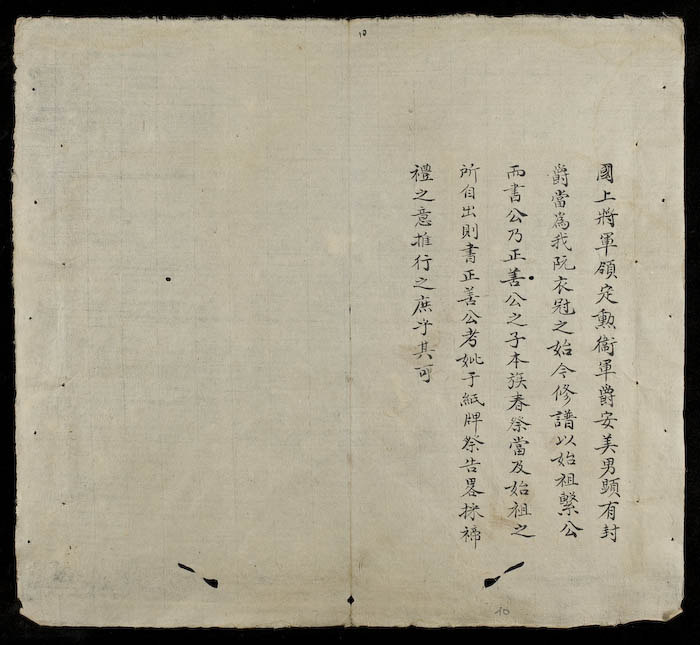 國上將軍領定勳衞軍爵安美男顕有封
爵當為我阮衣冠之始今修譜以始祖繫公
而書公乃正善公之子本族春祭當及始祖之
所自出則書正善公考妣于紙牌祭告畧採禘
禮之意推行之庶乎其可
10
10